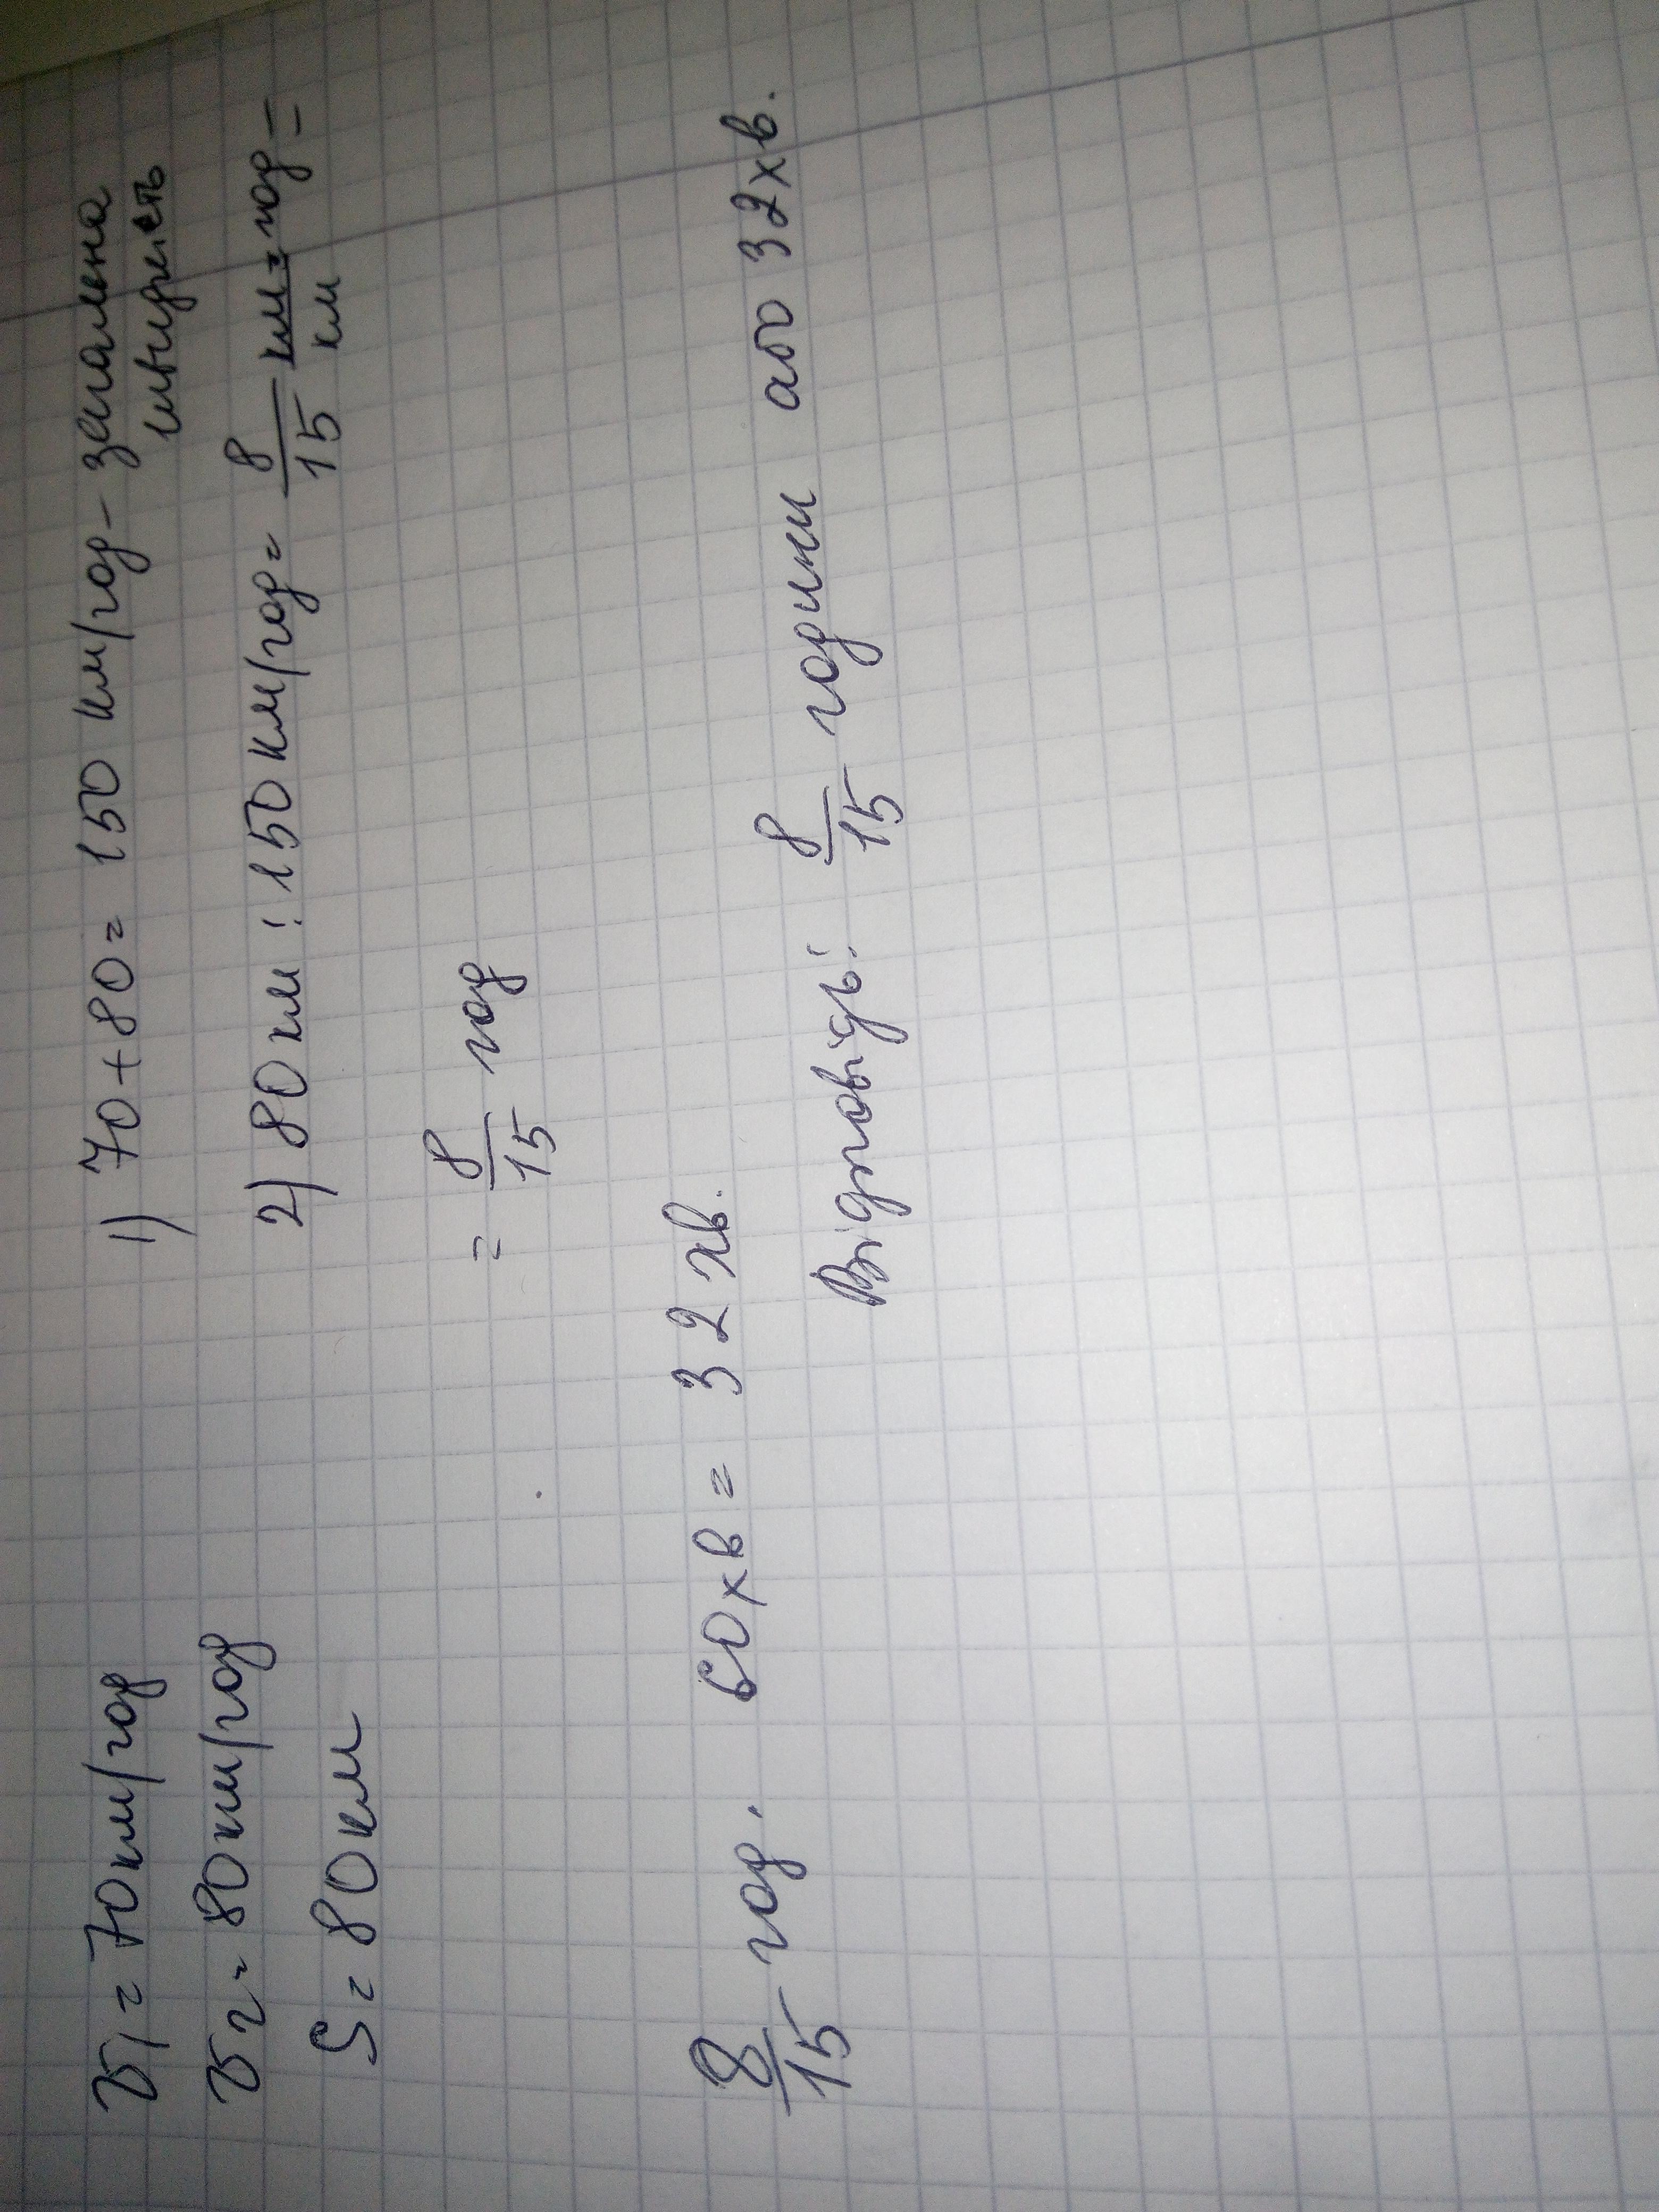 V₁ = 70км/год
V₂ = 80км/год
S = 80км
1) 70+80= 150 км/год - загальна
швидкість
2) 80км : 150км/год = 8/15 км · год/км =
= 8/15 год
8/15 год · 60хв = 32хв.
Відповідь: 8/15 години або 32хв.